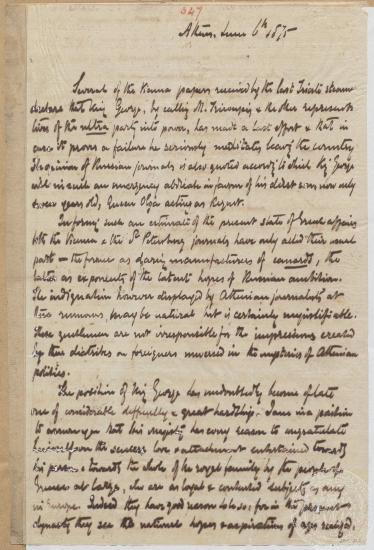 327
Athens, June 6th 1875
Several of the Vienna papers received by the last Trieste steamer
declare that King George, by calling M. Tricoupis & the other representa
tives of the ultra party into power, has made a last effort & that in
case it proves a failure he seriously meditates leaving the country
The opinion of Russian journals is also quoted according to which King George
will in such an emergency abdicate in favour of his eldest son now only
seven years old, Queen Olga acting as Regent.
In forming such an estimate of the present state of Greek affairs
both the Vienna & the St Petersburg journals have only acted their usual
part — the former as daring manufacturers of canards, the
latter as exponents of the latent hopes of Russian ambition.
The indignation however displayed by Athenian journalists at
these rumours, may be natural but is certainly unjustifiable.
These gentlemen are not irresponsible for the impressions created
by their diatribes on foreigners unversed in the mysteries of Athenian
politics.
The position of King George has undoubtedly become of late
one of considerable difficulty & great hardship. I am in a position
to assure you that his majesty has every reason to congratulate
himself on the sincere love & attachment entertained towards
his person & towards the whole of the royal family by the people of
Greece at large, who are as loyal & contented subjects as any
in Europe. Indeed they have good reason to be so; for in the present
dynasty they see the national hopes & aspirations of ages realized,